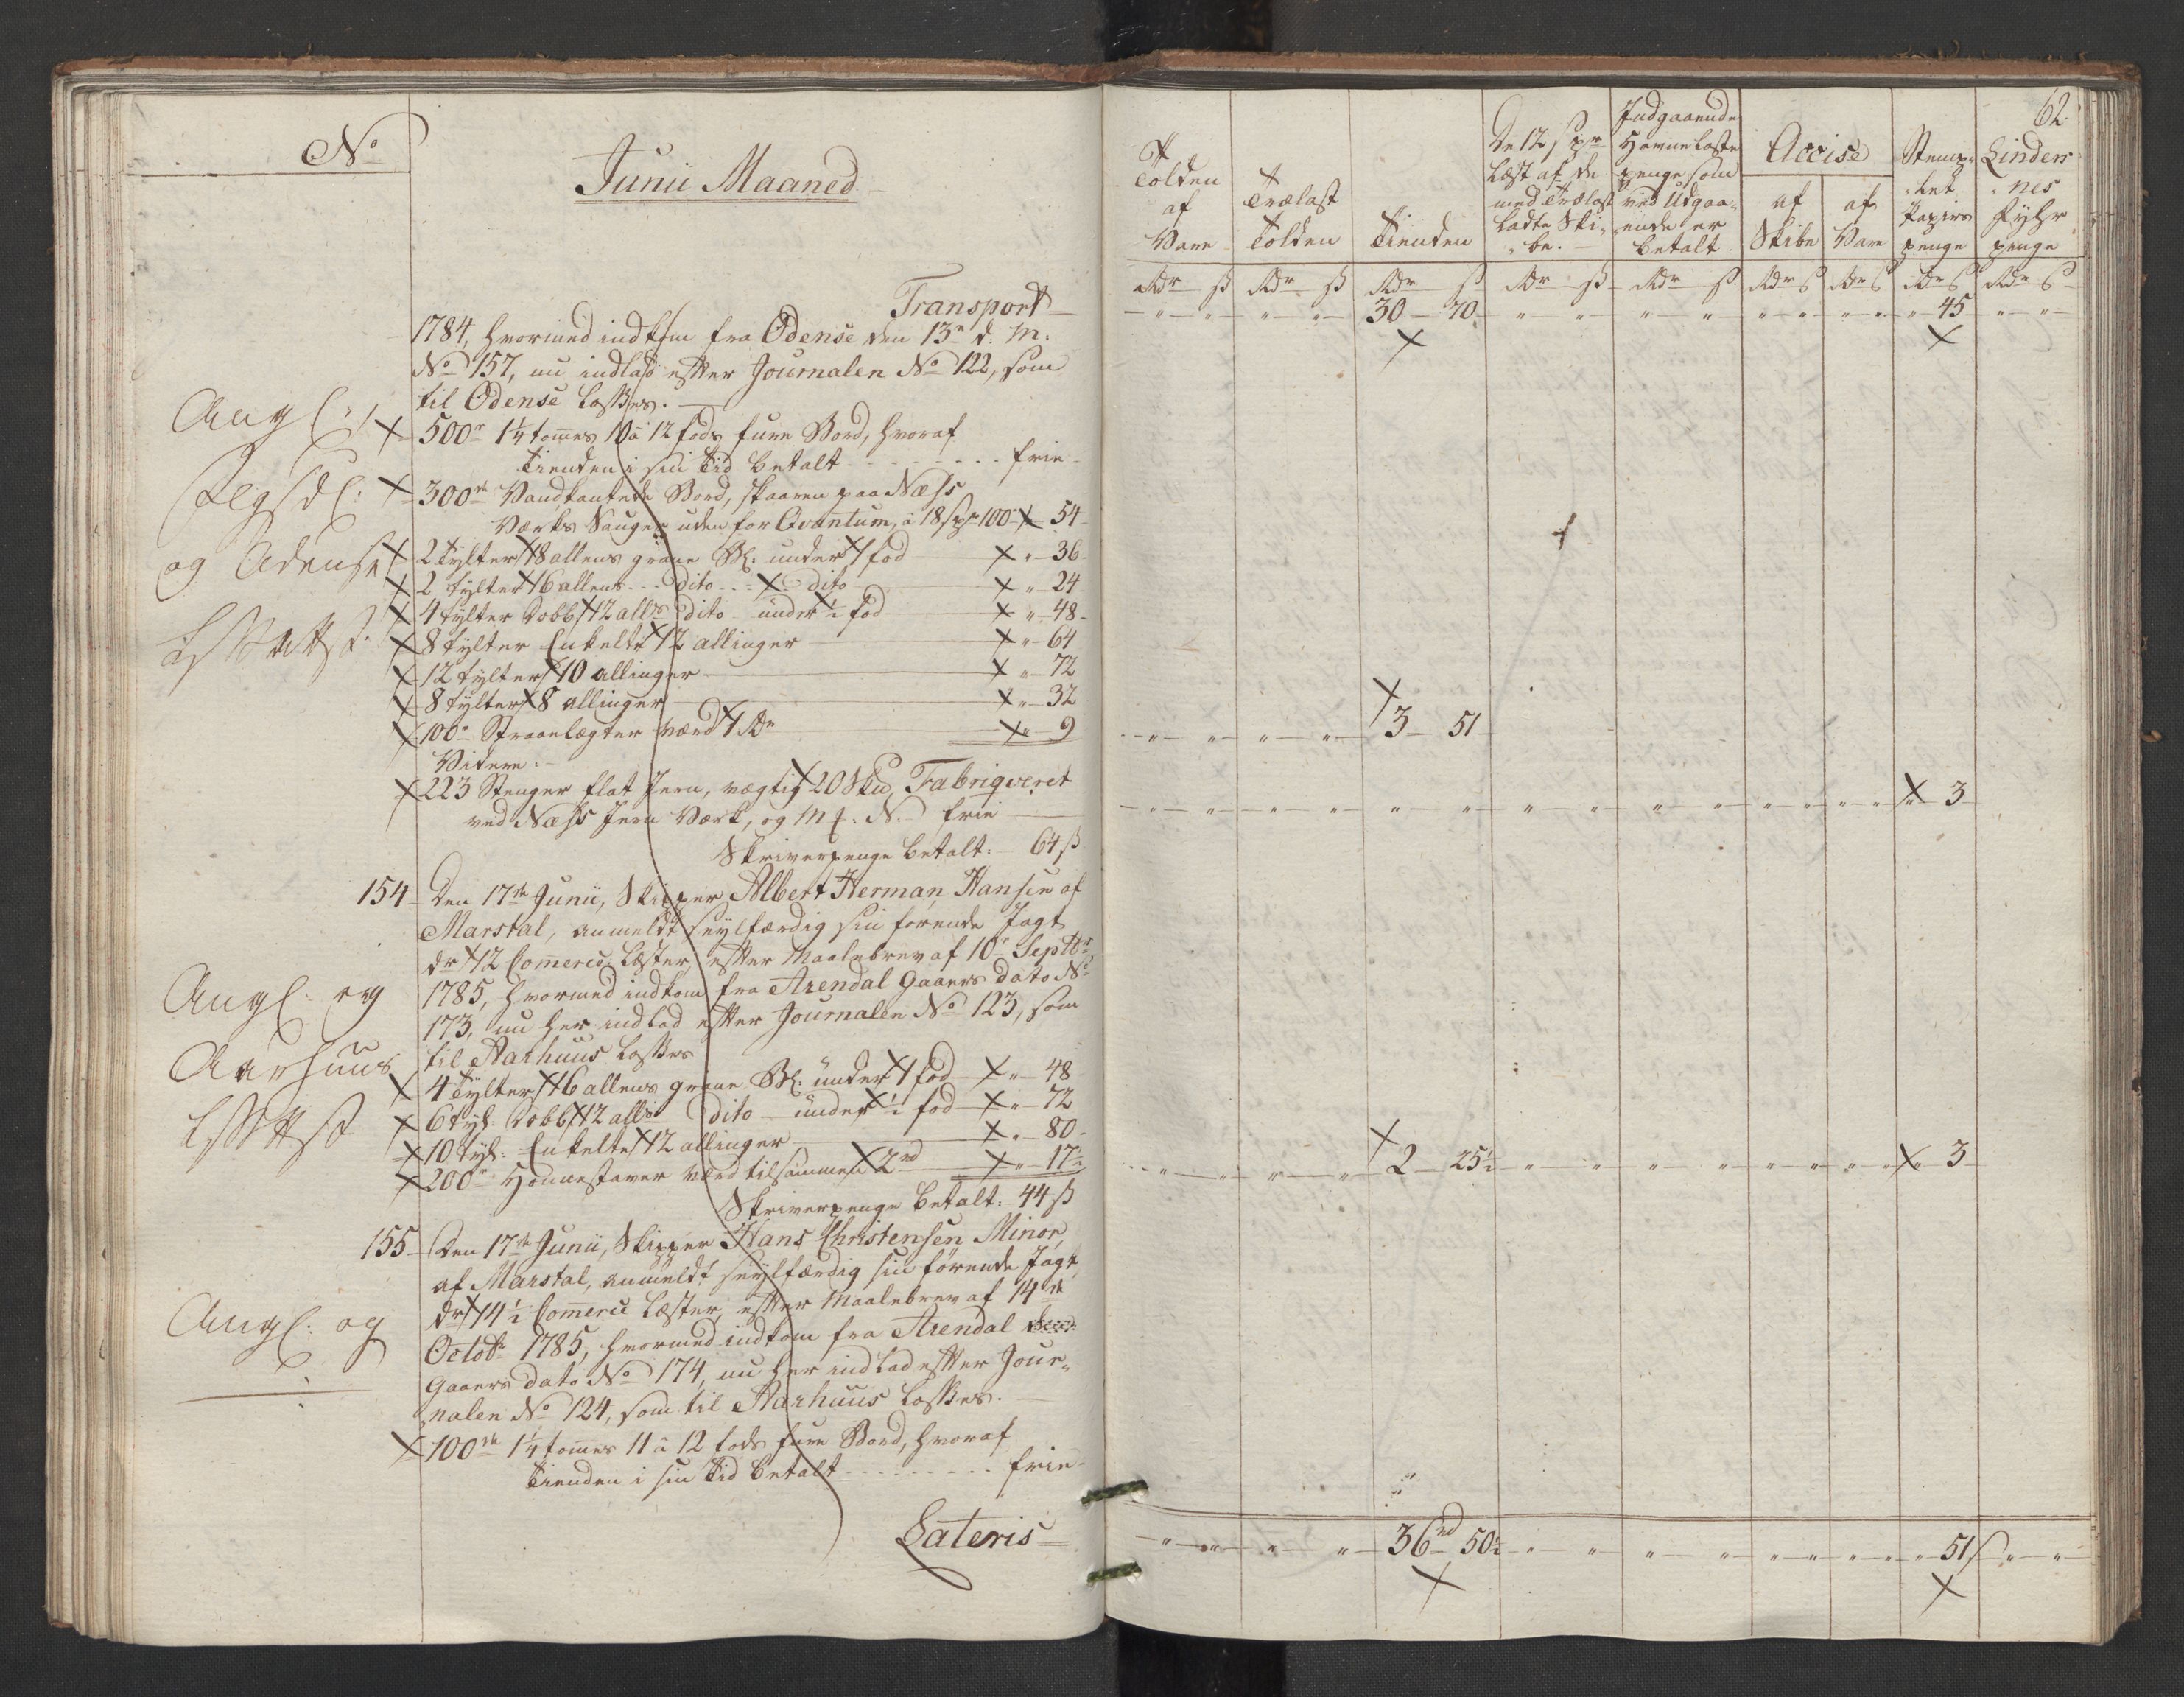 No
Junii Maaned
Transport
1784, hvormed indkom fra Odense den 13de d: M:
No 157, nu indladt efter Journalen No 122, som
til Odense losses.
500de 1 1/4 tommes 10 à 12 fods furu Bord, hvoraf
Tienden i sin Tid betalt - - - - frie
300de Vandkantede Bord, skaaren paa Næss
Værks Sauger uden for Qvantum, à 18 s pr 100de 54
2 Tylter 18 allens grane Bl: under 1 fod " 36
2 Tylter 16 allens - - dito - - dito " 24
4 Tylter Dobb: 12 all: dito under 1/2 fod " 48
8 Tylter Enkelte 12 allinger " 64
12 Tylter 10 allinger " 72
8 Tylter 8 allinger " 32
100de Straaelægter værd 1 Rdr " 9
Videre:
223 Stenger flat Jern, vægtig 20 Skd, Fabriqveret
ved Næss Jern Værk, og M f: N: frie
Skriverpenge betalt: 64 ß
Angl:
og Odense
154 Den 17de Junii, Skipper Albert Herman Hansen af
Marstal, anmeldt seylfærdig sin førende Jagt
dr 12 Commerce Læster, efter Maalebrev af 10de Septbr
1785, hvormed indkom fra Arendal Gaars dato No
173, nu her indlad efter Journalen No 123, som
til Aarhuus losses
4 Tylter 16 allens grane Bl: under 1 fod " 48
6 Tyl: Dobb: 12 all: dito under 1/2 fod " 72
10 Tyl: Enkelte 12 allinger " 80
200de Honnestaver værd tilsammen 2 rd " 17 1/2
Skriverpenge betalt: 44 ß
Angl: og
Aarhuus
155 Den 17de Junii, Skipper Hans Christensen Minor,
af Marstal, anmeldt seylfærdig sin førende Jagt
dr 14 1/2 Commerce Læster, efter Maalebrev af 14de
Octobr 1785, hvormed indkom fra Arendal
Gaars dato No 174, nu her indlad efter Jour-
nalen No 124, som til Aarhuus losses.
100de 1 1/4 tommes 11 à 12 fods furu Bord, hvoraf
Tienden i sin Tid betalt - - - - frie
Angl: og
Lateris
62.
Tolden af Vare
Trælast Tolden
Tienden
De 12 s pr Læst af de med Trælast ladte Skibe.
Indgaaende Havne Laste penge som ved Udgaaende er betalt
Accise
af Skibe
af Vare
Stemplet Papirs penge
Lindesnes Fyhr penge
Rdr ß Rdr ß Rdr ß Rdr ß Rdr ß Rdr ß Rdr ß Rdr ß Rdr ß
30 70 45
3 51
3
2 25 1/2 3
36 rd 50 1/2 51 ß